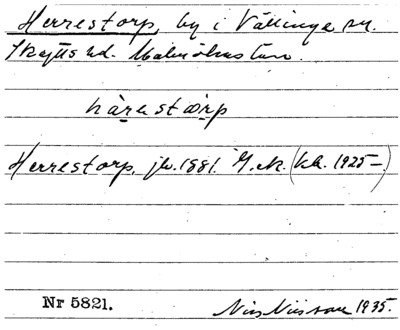 Herrestorp, by i Vällinge sn.
Skytts hd. Malmöhus län.
hä̀rəstàrp
Herrestorp, jw. 1881. G.ek. (kh. 1925–)
Nr 5821. Nils Nilsson 1935.